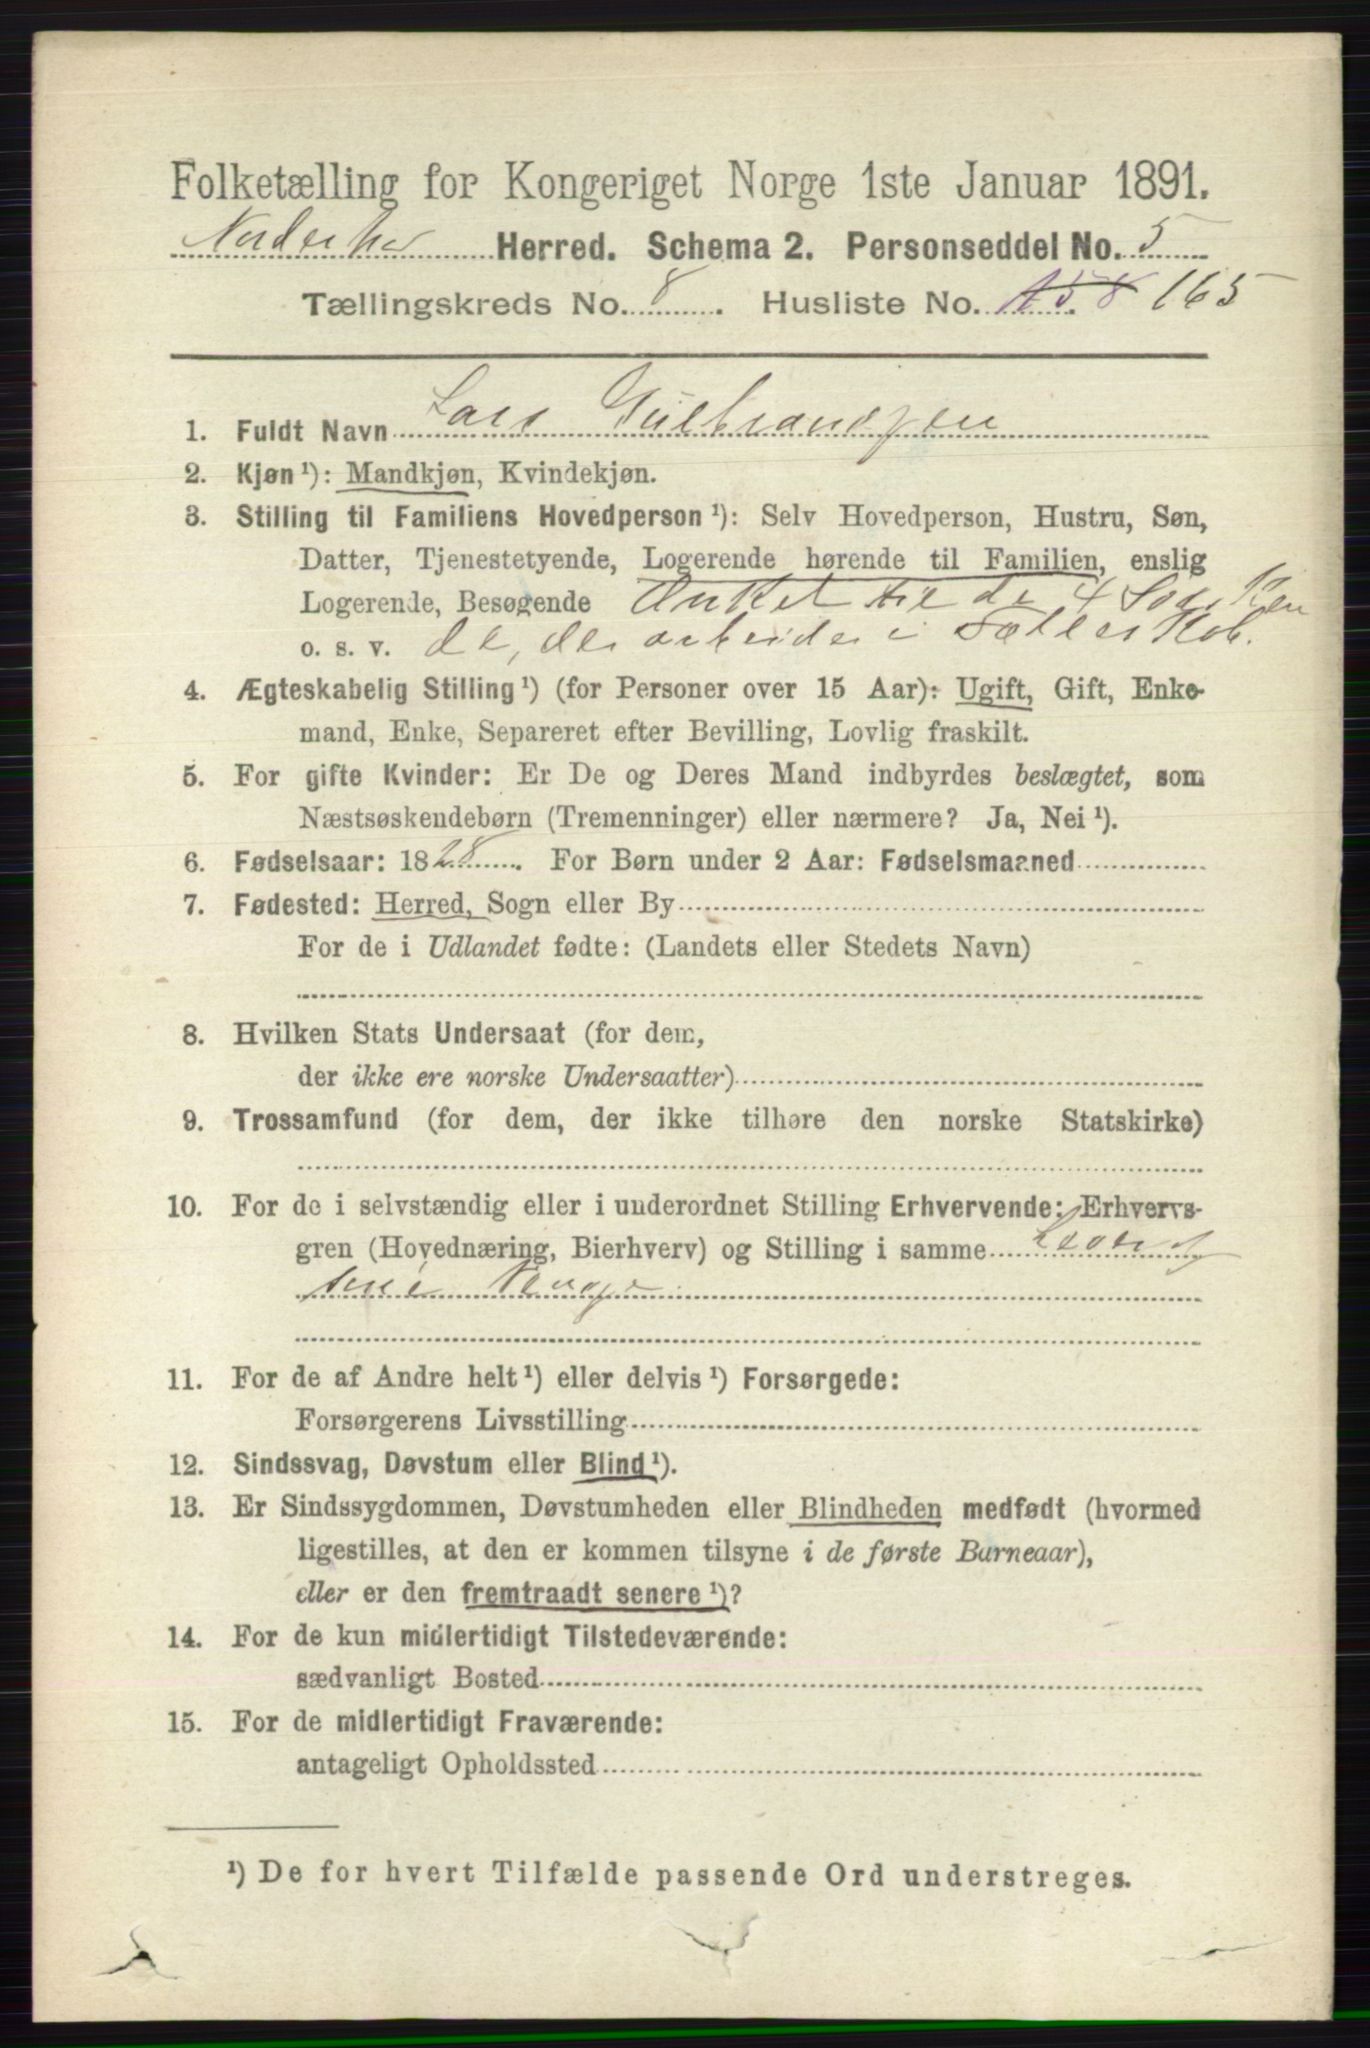 Folketælling for Kongeriget Norge 1ste Januar 1891.
Norderhov Herred. Schema 2. Personseddel No. 5
Tællingskreds No. 8. Husliste No. 158 165
1. Fuldt Navn Lars Gulbrandsen
2. Kjøn ¹): Mandkjøn, Kvindekjøn.
3. Stilling til Familiens Hovedperson ¹): Selv Hovedperson, Hustru, Søn,
Datter, Tjenestetyende, Logerende hørende til Familien, enslig
Logerende, Besøgende Onkel til de 4 Sødsken
o. s. v. de, der arbeider i Fællesskab.
4. Ægteskabelig Stilling ¹) (for Personer over 15 Aar): Ugift, Gift, Enke-
mand, Enke, Separeret efter Bevilling, Lovlig fraskilt.
5. For gifte Kvinder: Er De og Deres Mand indbyrdes beslægtet, som
Næstsøskendebørn (Tremenninger) eller nærmere? Ja, Nei ¹).
6. Fødselsaar: 1828. For Børn under 2 Aar: Fødselsmaaned
7. Fødested: Herred, Sogn eller By
For de i Udlandet fødte: (Landets eller Stedets Navn)
8. Hvilken Stats Undersaat (for dem,
der ikke ere norske Undersaatter)
9. Trossamfund (for dem, der ikke tilhøre den norske Statskirke)
10. For de i selvstændig eller i underordnet Stilling Erhvervende: Erhvervs-
gren (Hovednæring, Bierhverv) og Stilling i samme Lever af
sine Penge
11. For de af Andre helt ¹) eller delvis ¹) Forsørgede:
Forsørgerens Livsstilling
12. Sindssvag, Døvstum eller Blind ¹).
13. Er Sindssygdommen, Døvstumheden eller Blindheden medfødt (hvormed
ligestilles, at den er kommen tilsyne i de første Barneaar),
eller er den fremtraadt senere ¹)?
14. For de kun midlertidigt Tilstedeværende:
sædvanligt Bosted
15. For de midlertidigt Fraværende:
antageligt Opholdssted
¹) De for hvert Tilfælde passende Ord understreges.